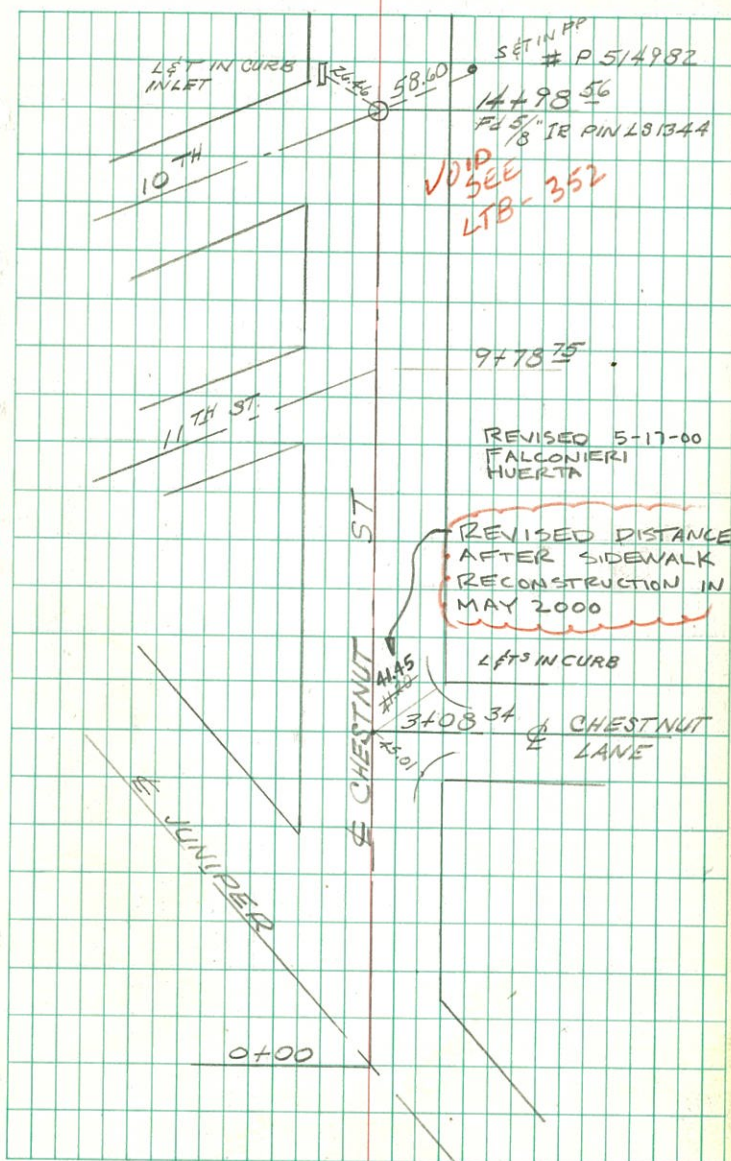 S&T IN PP
# P 514982
L&T IN CURB
INLET
26.46
58.60
14+98 56
Fd 5/8" IR PIN LS1344
10 TH
VOID
SEE
LTB - 352
9+78 75
11 TH ST.
REVISED 5-17-00
FALCONIERI
HUERTA
REVISED DISTANCE
AFTER SIDEWALK
RECONSTRUCTION IN
MAY 2000
L&TS IN CURB
41.45
3+08 34 ℄ CHESTNUT
LANE
℄ CHESTNUT ST
℄ JUNIPER
0+00